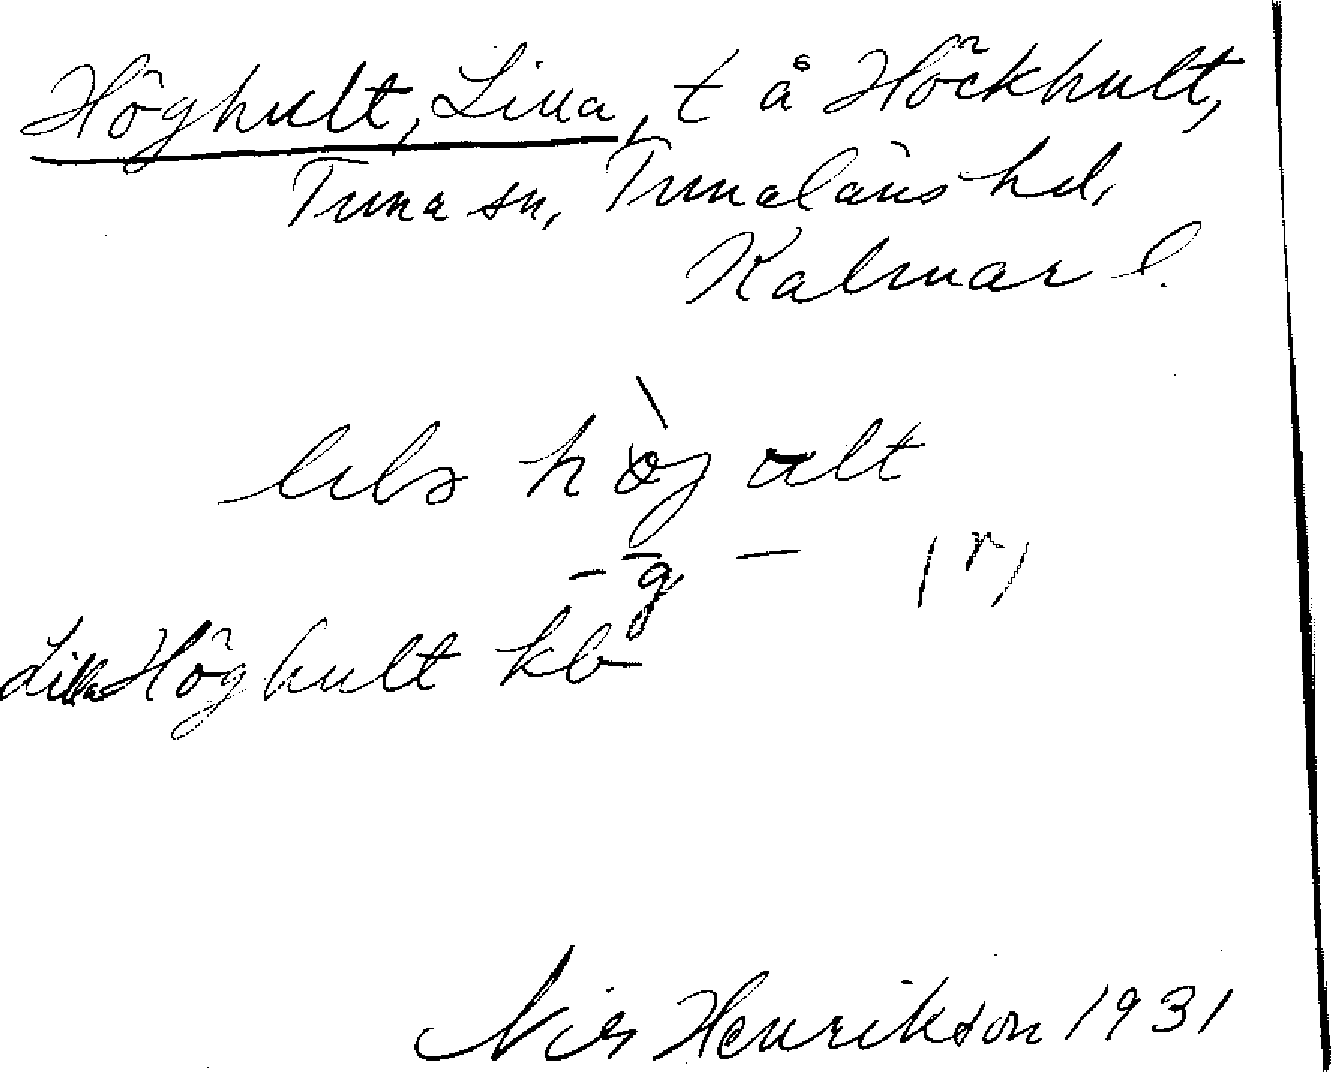 Höghult, Lilla, t å Höckhult,
Tuna sn, Tunaläns hd,
Kalmar l.
högult
- g - (r)
Lilla Höghult kb
Nils Henrikson 1931